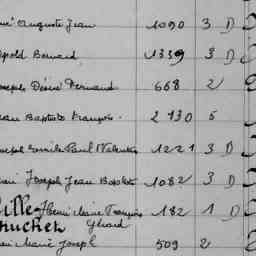 Auguste Jean 1090 3 D
opold Bernard 1339 3 D
oseph Désiré Fernand 668 2
ean Baptiste François. 2730 5
oseph Emile Paul Valentin 1221 3 D
Joseph Jean Baptiste 1082 3 D
ille-Henri Marie François 182 1 D
huchet Gérard
Marie Joseph 509 2